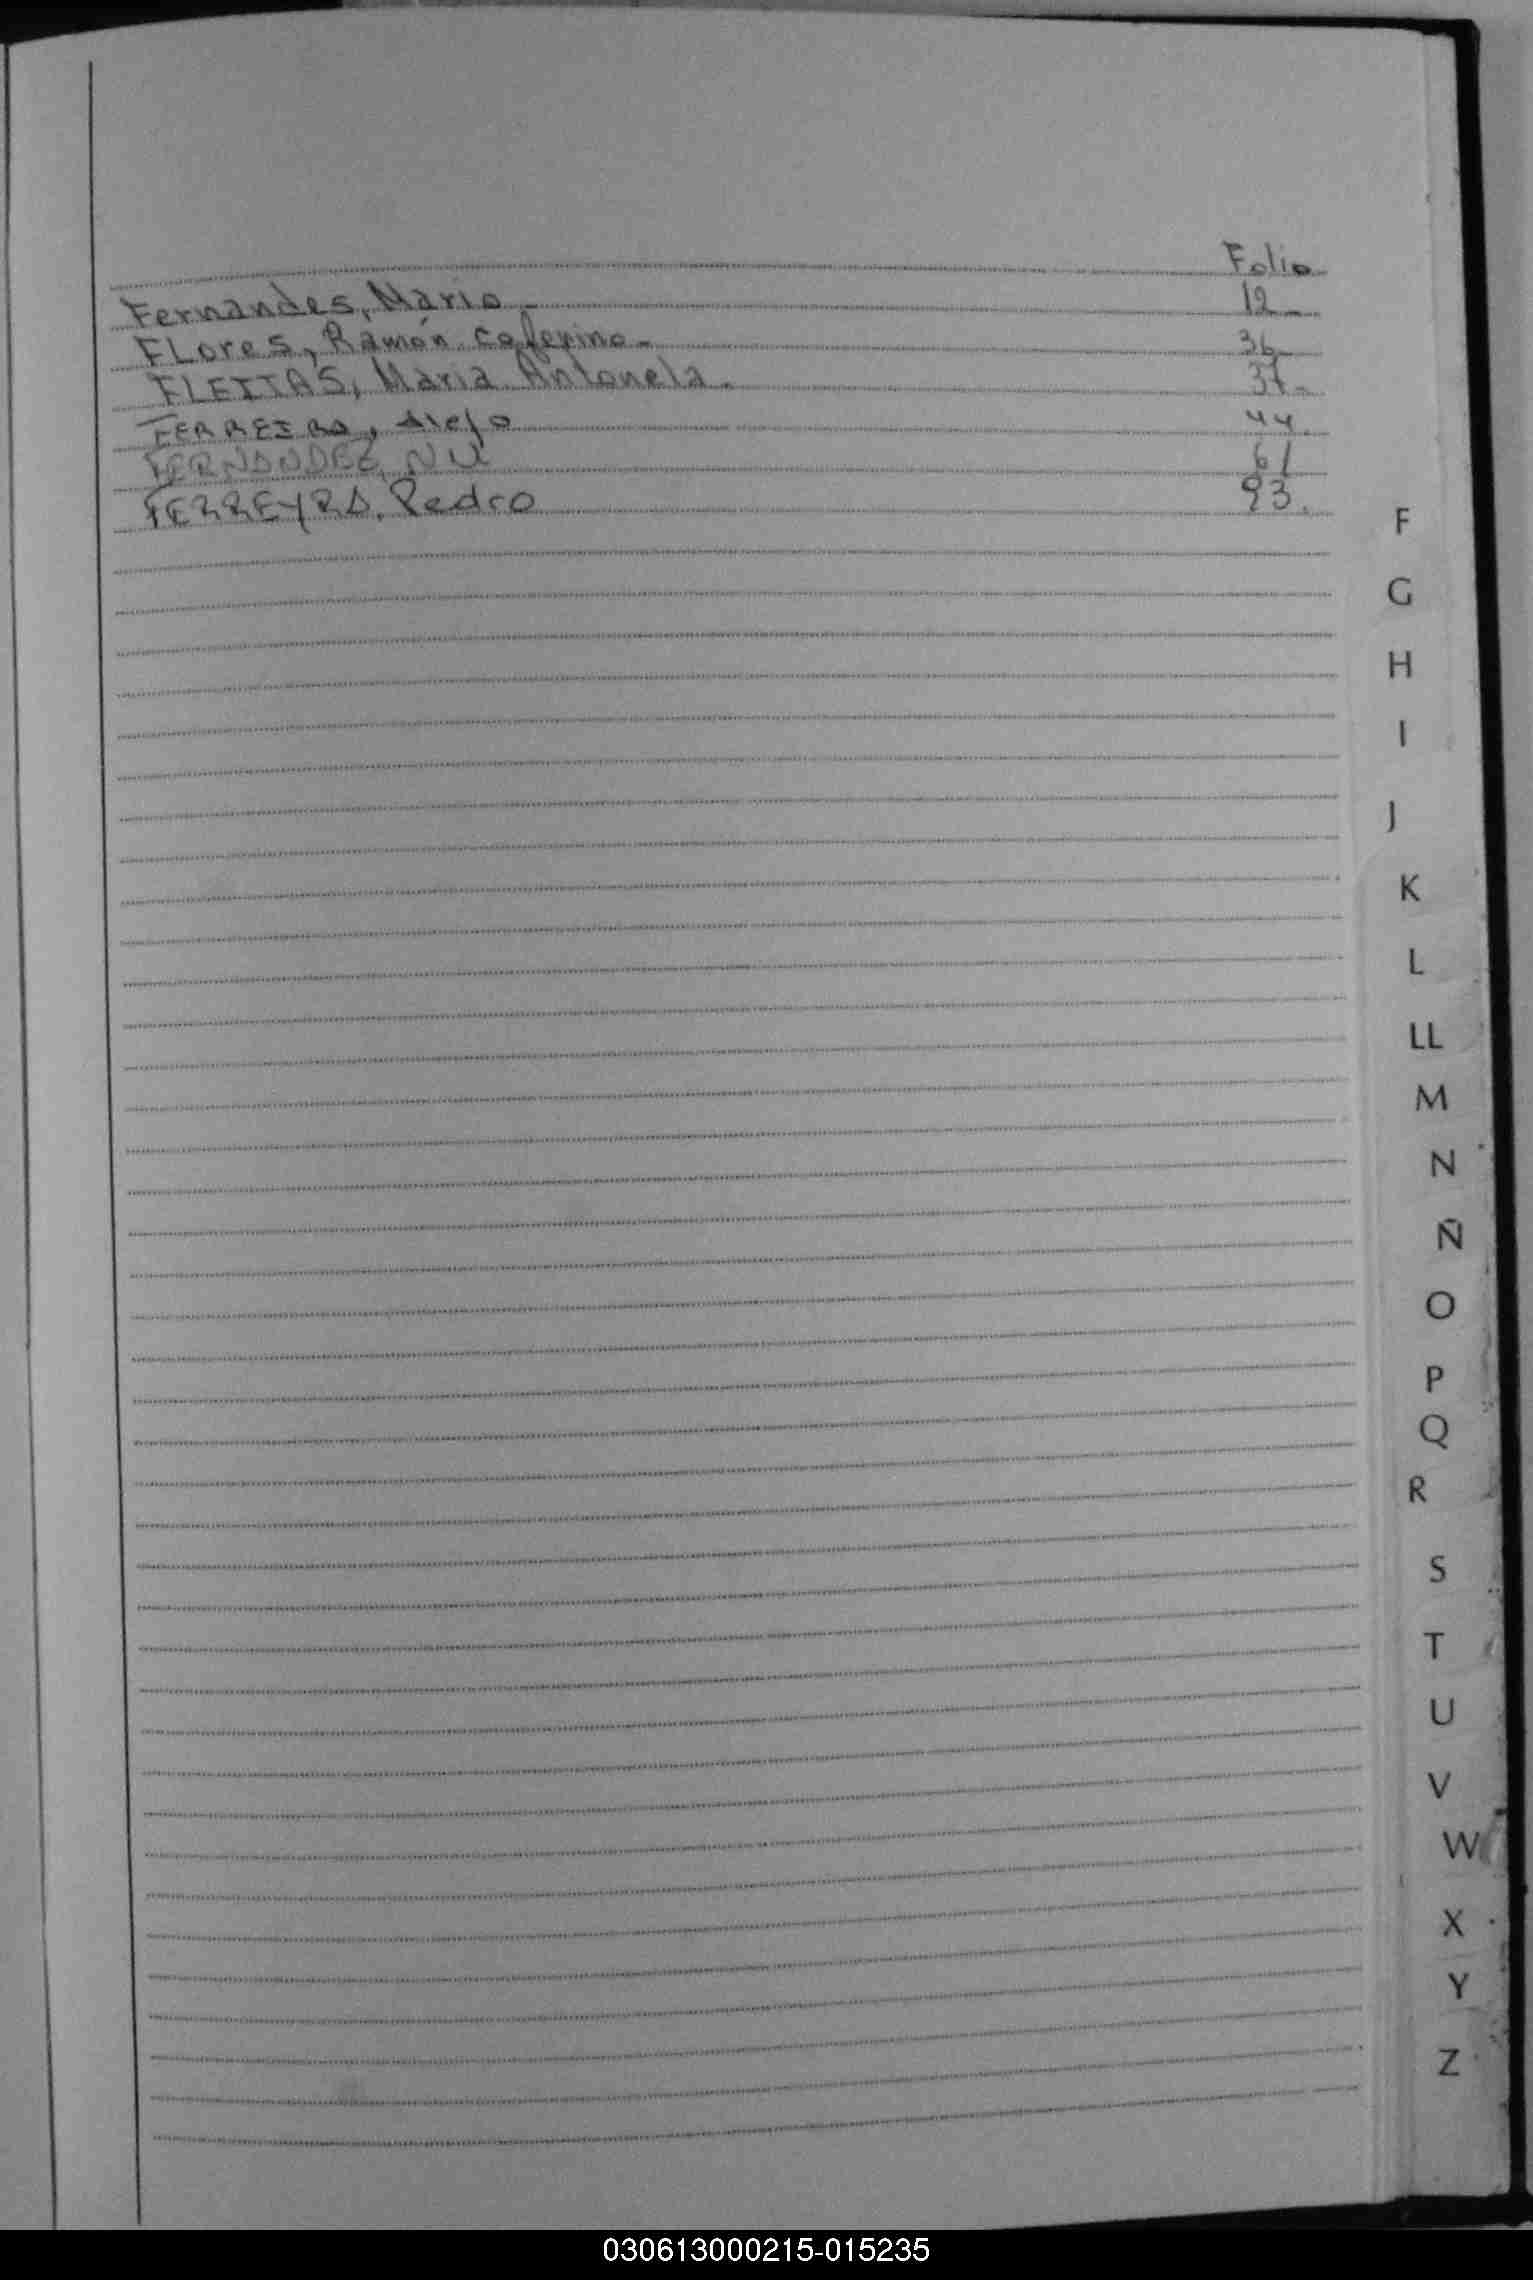 Folio
Fernandes, Mario - 12 -
FLores, Ramón ceferino - 36
FLEITAS, Maria Antonela . 37 -
FERREIRA, Alejo 44
FERNANDEZ, NN 61
FERREYRA, Pedro 93.
F
G
H
I
J
K
L
LL
M
N
Ñ
O
P
Q
R
S
T
U
V
W
X
Y
Z
030613000215-015235